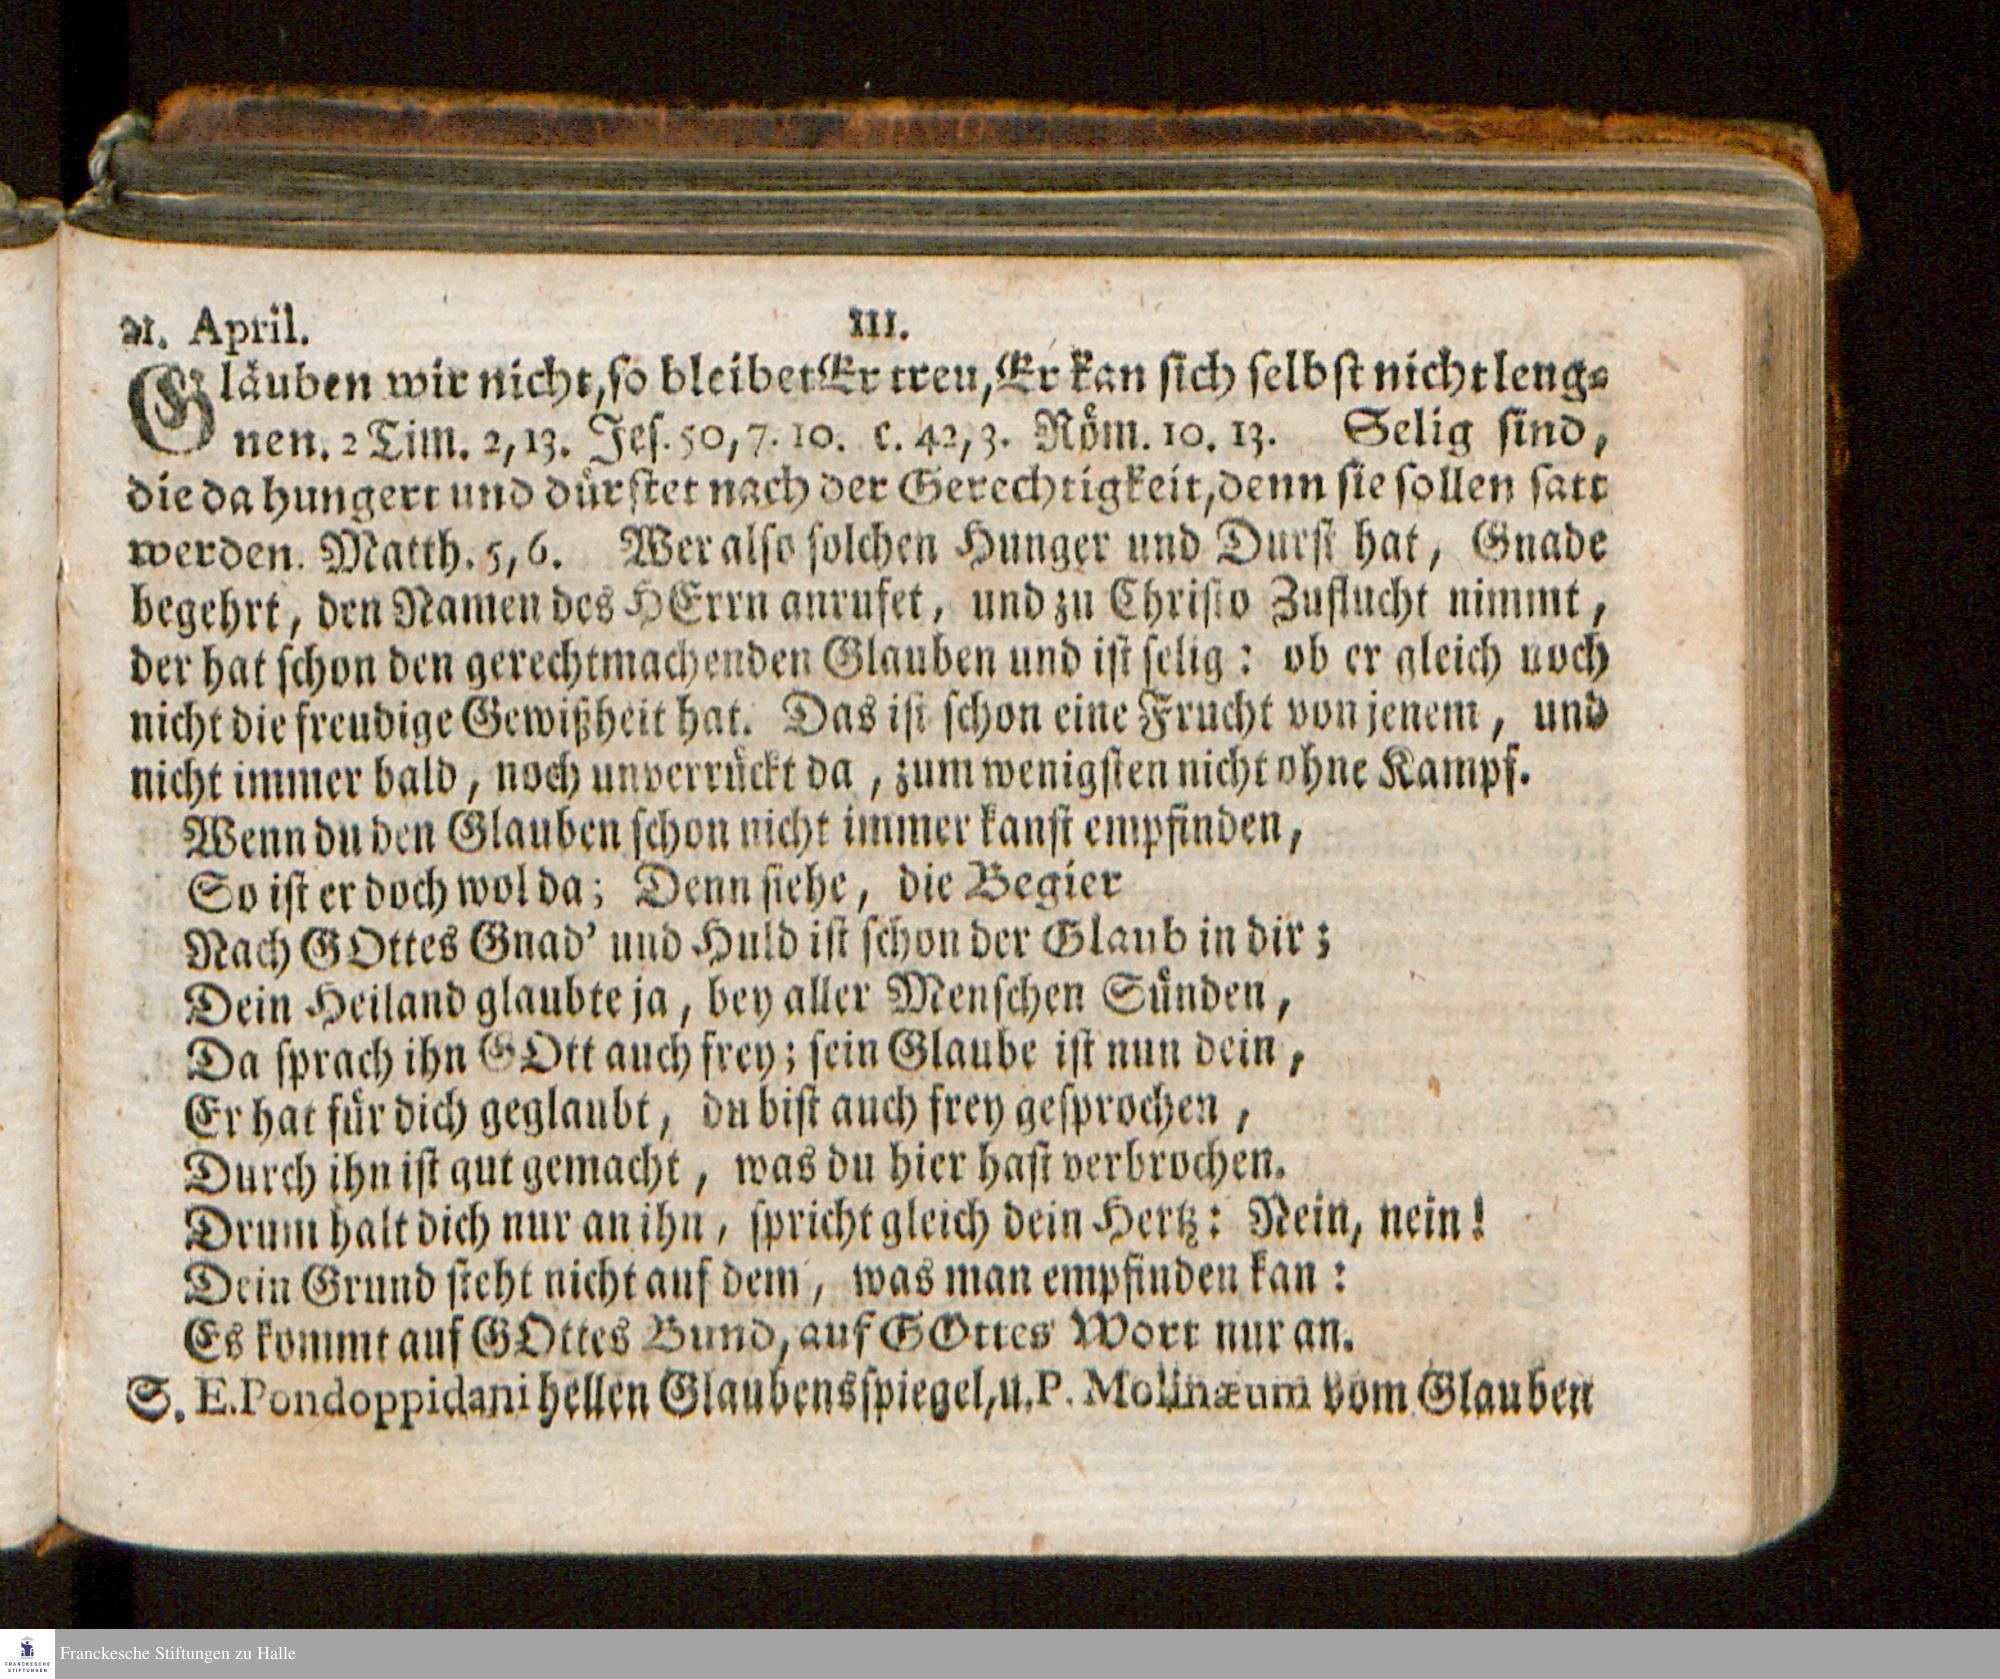 21. April. 111.
Gläuben wir nicht, so bleibet Er treu, Er kan sich selbst nicht leng-
nen. 2 Tim. 2, 13. Jes. 50, 7. 10. c. 42, 3. Röm. 10. 13. Selig sind,
die da hungert und dürstet nach der Gerechtigkeit, denn sie sollen satt
werden. Matth. 5, 6. Wer also solchen Hunger und Durst hat, Gnade
begehrt, den Namen des HErrn anrufet, und zu Christo Zuflucht nimmt,
der hat schon den gerechtmachenden Glauben und ist selig: ob er gleich noch
nicht die freudige Gewißheit hat. Das ist schon eine Frucht von jenem, und
nicht immer bald, noch unverrückt da, zum wenigsten nicht ohne Kampf.
Wenn du den Glauben schon nicht immer kanst empfinden,
So ist er doch wol da; Denn siehe, die Begier
Nach GOttes Gnad' und Huld ist schon der Glaub in dir;
Dein Heiland glaubte ja, bey aller Menschen Sünden,
Da sprach ihn GOtt auch frey; sein Glaube ist nun dein,
Er hat für dich geglaubt, du bist auch frey gesprochen,
Durch ihn ist gut gemacht, was du hier hast verbrochen.
Drum halt dich nur an ihn, spricht gleich dein Hertz: Nein, nein!
Dein Grund steht nicht auf dem, was man empfinden kan:
Es kommt auf GOttes Bund, auf GOttes Wort nur an.
S. E. Pondoppidani hellen Glaubensspiegel, u. P. Molinæum vom Glauben
FRANCKESCHE
STIFTUNGEN
Franckesche Stiftungen zu Halle